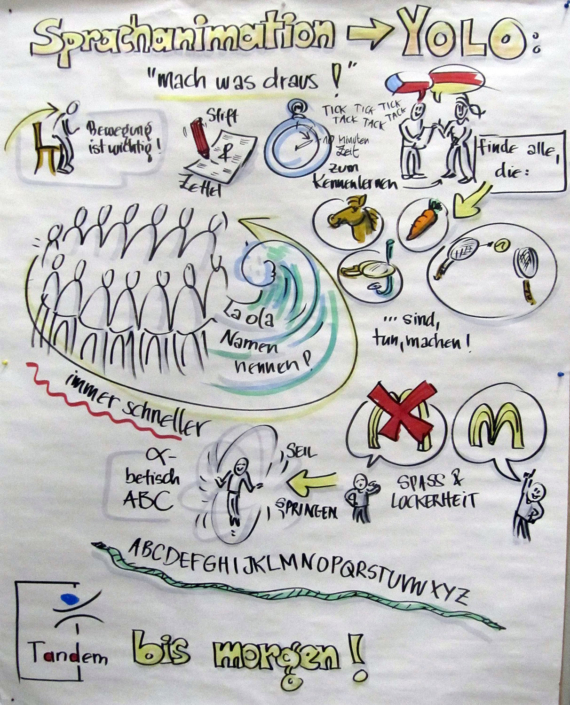 Sprachanimation → YOLO:
"mach was draus!"
Bewegung
ist wichtig!
Stift
&
Zettel
TICK TICK TICK
TACK TACK TACK
10 Minuten
Zeit
zum
Kennenlernen
finde alle,
die:
... sind,
tun, machen!
La ola
Namen
nennen!
immer schneller
α-
betisch
ABC
SEIL
SPRINGEN
SPASS &
LOCKERHEIT
M
M
ABCDEFGHIJKLMNOPQRSTUVWXYZ
Tandem
bis morgen!